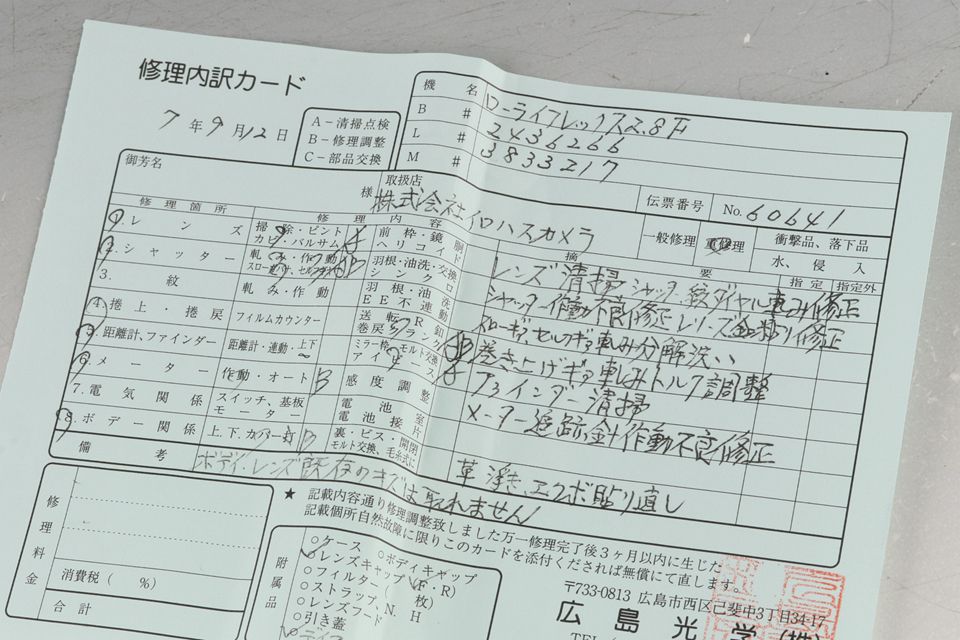 修理内訳カード
7年9月12日
A－清掃点検
B－修理調整
C－部品交換
機名 ローライフレックス2.8F
B # 2436266
L # 3833217
M #
伝票番号 No. 60641
御芳名 様
取扱店 株式会社イロハスカメラ
一般修理 重修理 衝撃品、落下品
水、侵入
指定 指定外
修理箇所 修理内容 摘要
1.レンズ 掃除・ピント カビ・バルサム 前枠・鏡胴 ヘリコイド
2.シャッター 軋み・作動 羽根・油洗・交換
3.絞 軋み・作動 羽根・油洗 EE不連動
4.捲上・捲戻 フィルムカウンター 送転・R釦
5.距離計、ファインダー 距離計・連動・上下 ミラー枠・モルト交換
6.メーター 作動・オート B 感度調整
7.電気関係 スイッチ、基板 モーター 電池室 電池接片
8.ボデー関係 上.下.カバー B 裏・ビス・開閉 モルト交換、毛糸式に
レンズ清掃 シャッター、絞ダイヤル軋み修正
シャッター作動不良修正 レリーズ
巻き上げギヤ軋みトルク調整
ファインダー清掃
メーター追跡針作動不良修正
革浮き、エクボ貼り直し
備考 ボディ・レンズ既存のキズは取れません
★ 記載内容通り修理調整致しました万一修理完了後3ヶ月以内に生じた
記載個所自然故障に限りこのカードを添付くだされば無償にて直します。
修理料金
消費税（ %）
合計
附属品
○ケース ○ボディキャップ
○レンズキャップ（F・R）
○フィルター（ 枚）
○ストラップ、N. H
○レンズフード
○引き蓋
〒733-0813 広島市西区己斐中3丁目34-17
広島光学